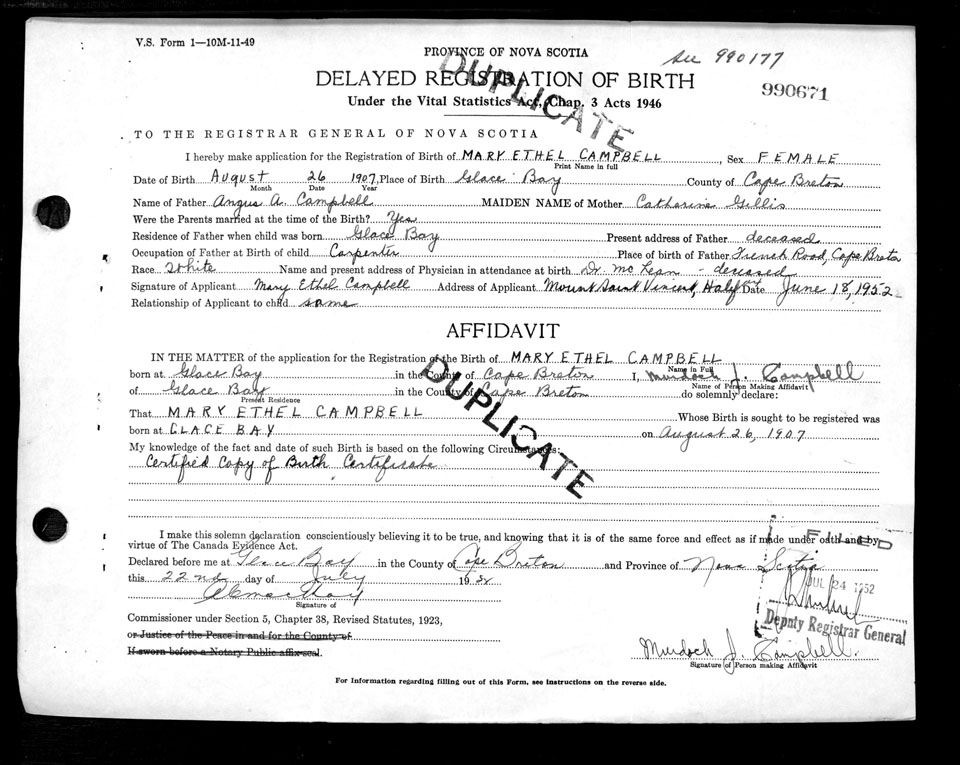 V.S. Form 1—10M-11-49
PROVINCE OF NOVA SCOTIA
see 990177
DELAYED REGISTRATION OF BIRTH
990671
Under the Vital Statistics Act, Chap. 3 Acts 1946
DUPLICATE
TO THE REGISTRAR GENERAL OF NOVA SCOTIA
I hereby make application for the Registration of Birth of MARY ETHEL CAMPBELL, Sex FEMALE
Print Name in full
Date of Birth August 26 1907, Place of Birth Glace Bay County of Cape Breton
Month Date Year
Name of Father Angus A. Campbell MAIDEN NAME of Mother Catharine Gillis
Were the Parents married at the time of the Birth? Yes
Residence of Father when child was born Glace Bay Present address of Father deceased
Occupation of Father at Birth of child Carpenter Place of birth of Father French Road, Cape Breton
Race White Name and present address of Physician in attendance at birth Dr. Mc Lean - deceased
Signature of Applicant Mary Ethel Campbell Address of Applicant Mount Saint Vincent, Halifax Date June 18, 1952
Relationship of Applicant to child same
AFFIDAVIT
IN THE MATTER of the application for the Registration of the Birth of MARY ETHEL CAMPBELL
Name in Full
born at Glace Bay in the County of Cape Breton I, Murdoch J. Campbell
Name of Person Making Affidavit
of Glace Bay in the County of Cape Breton do solemnly declare:
Present Residence
DUPLICATE
That MARY ETHEL CAMPBELL Whose Birth is sought to be registered was
born at GLACE BAY on August 26, 1907
My knowledge of the fact and date of such Birth is based on the following Circumstances:
Certified Copy of Birth Certificate
I make this solemn declaration conscientiously believing it to be true, and knowing that it is of the same force and effect as if made under oath and by
virtue of The Canada Evidence Act.
FILED
Declared before me at Glace Bay in the County of Cape Breton and Province of Nova Scotia
this 22nd day of July 1952
JUL 24 1952
Signature of
Deputy Registrar General
Commissioner under Section 5, Chapter 38, Revised Statutes, 1923,
or Justice of the Peace in and for the County of
If sworn before a Notary Public affix seal.
Murdoch J. Campbell.
Signature of Person making Affidavit
For Information regarding filling out of this Form, see instructions on the reverse side.